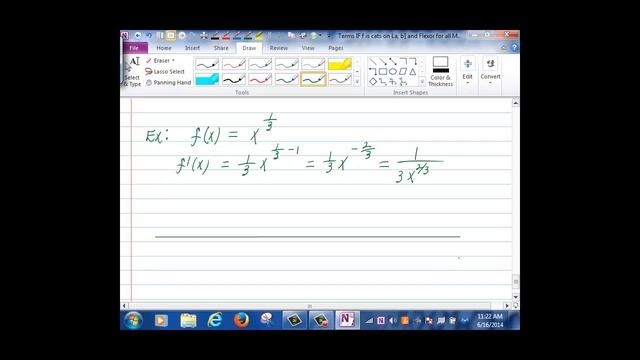 Terms IF f is cats on La, b] and Flexor for all M...
File Home Insert Draw View
Eraser
Lasso Select
Panning Hand
Select & Type
Color & Thickness
Edit
Convert
Tools
Insert Shapes
Ex: f(x) = x^{1/3}
f'(x) = 1/3 x^{1/3 - 1} = 1/3 x^{-2/3} = 1/(3x^{2/3})
11:22 AM
6/16/2014